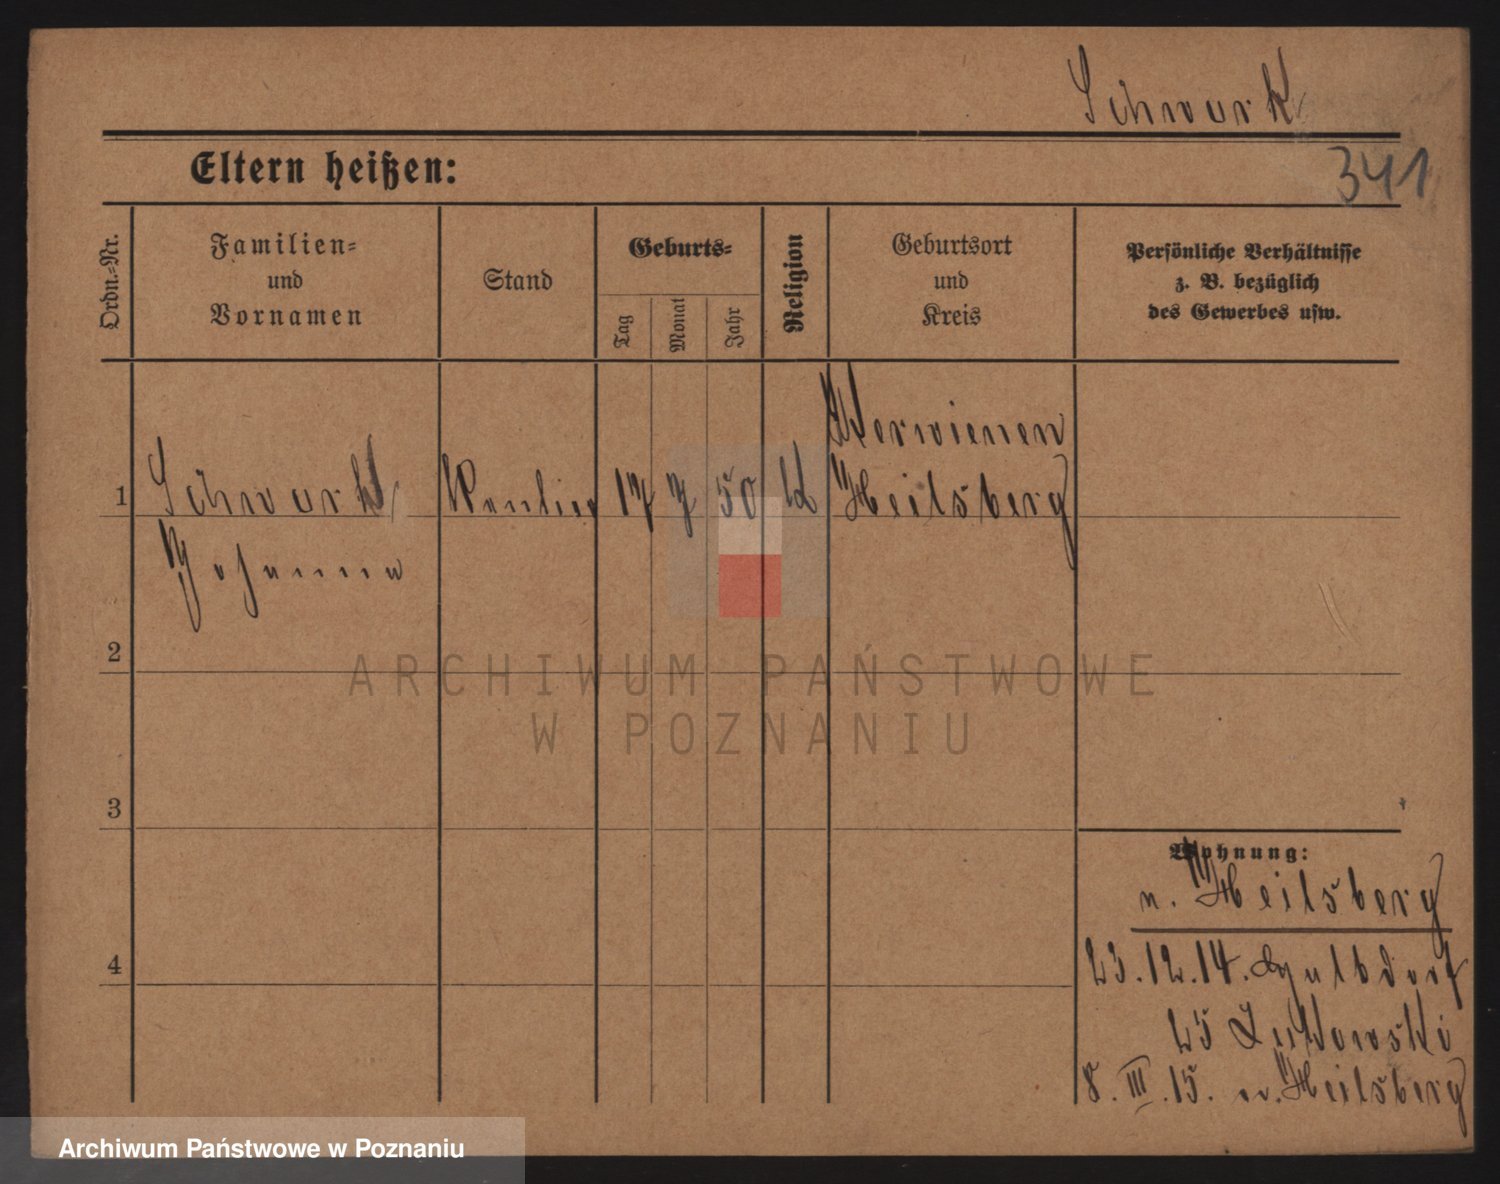 Schwark
341
Eltern heißen:
Ordn.-Nr.
Familien-
und
Vornamen
Stand
Geburts-
Tag
Monat
Jahr
Religion
Geburtsort
und
Kreis
Persönliche Verhältnisse
z. B. bezüglich
des Gewerbes usw.
Werwienen
1 Schwark Rentier 17 7 50 Heilsberg
2
ARCHIWUM PAŃSTWOWE
W POZNANIU
3
Wohnung:
n. Heilsberg
4
23.12.14.
25
8.III.15. Heilsberg
Archiwum Państwowe w Poznaniu